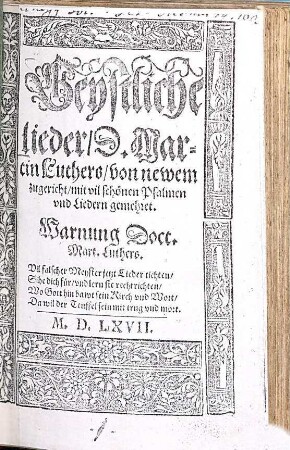 Geystliche
lieder/ D. Mar-
tin Luthers/ von newem
zugericht/ mit vil schönen Psalmen
vnd Liedern gemehret.
Warnung Doct.
Mart. Luthers.
Vil falscher Meyster jetzt Lieder tichten/
Sihe dich für/ vnd lern sie recht richten/
Wo Gott hin bawt sein Kirch vnd Wort/
Da wil der Teuffel sein mit trug vnd mort.
M. D. LXVII.